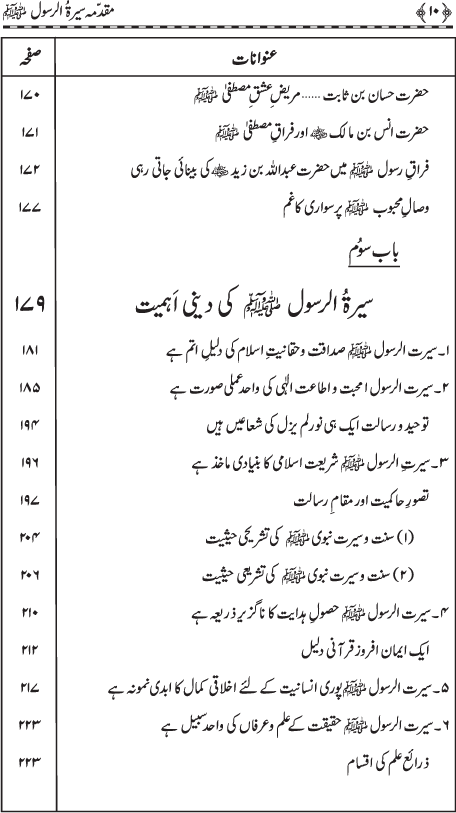 ﴿۱۰﴾ مقدّمہ سیرۃُ الرسول ﷺ
عنوانات صفحہ
حضرت حسان بن ثابت ...... مریضِ عشقِ مصطفیٰ ﷺ ۱۷۰
حضرت انس بن مالک ؓ اور فراقِ مصطفیٰ ﷺ ۱۷۱
فراقِ رسول ﷺ میں حضرت عبداللہ بن زید ؓ کی بینائی جاتی رہی ۱۷۲
وصالِ محبوب ﷺ پر سواری کا غم ۱۷۷
باب سوُم
سیرۃُ الرسول ﷺ کی دینی اَہمیت ۱۷۹
۱۔ سیرت الرسول ﷺ صداقت و حقانیتِ اسلام کی دلیلِ اتم ہے ۱۸۱
۲۔ سیرت الرسول ا محبت و اطاعت الٰہی کی واحد عملی صورت ہے ۱۸۵
توحید و رسالت ایک ہی نورِ لم یزل کی شعاعیں ہیں ۱۹۴
۳۔ سیرتِ الرسول ﷺ شریعت اسلامی کا بنیادی ماخذ ہے ۱۹۶
تصورِ حاکمیت اور مقامِ رسالت ۱۹۷
(۱) سنت و سیرت نبوی ﷺ کی تشریحی حیثیت ۲۰۴
(۲) سنت و سیرت نبوی ﷺ کی تشریعی حیثیت ۲۰۶
۴۔ سیرت الرسول ﷺ حصولِ ہدایت کا ناگزیر ذریعہ ہے ۲۱۰
ایک ایمان افروز قرآنی دلیل ۲۱۲
۵۔ سیرت الرسول ﷺ پوری انسانیت کے لئے اخلاقی کمال کا ابدی نمونہ ہے ۲۱۷
۶۔ سیرت الرسول ﷺ حقیقت کے علم و عرفاں کی واحد سبیل ہے ۲۲۳
ذرائع علم کی اقسام ۲۲۳